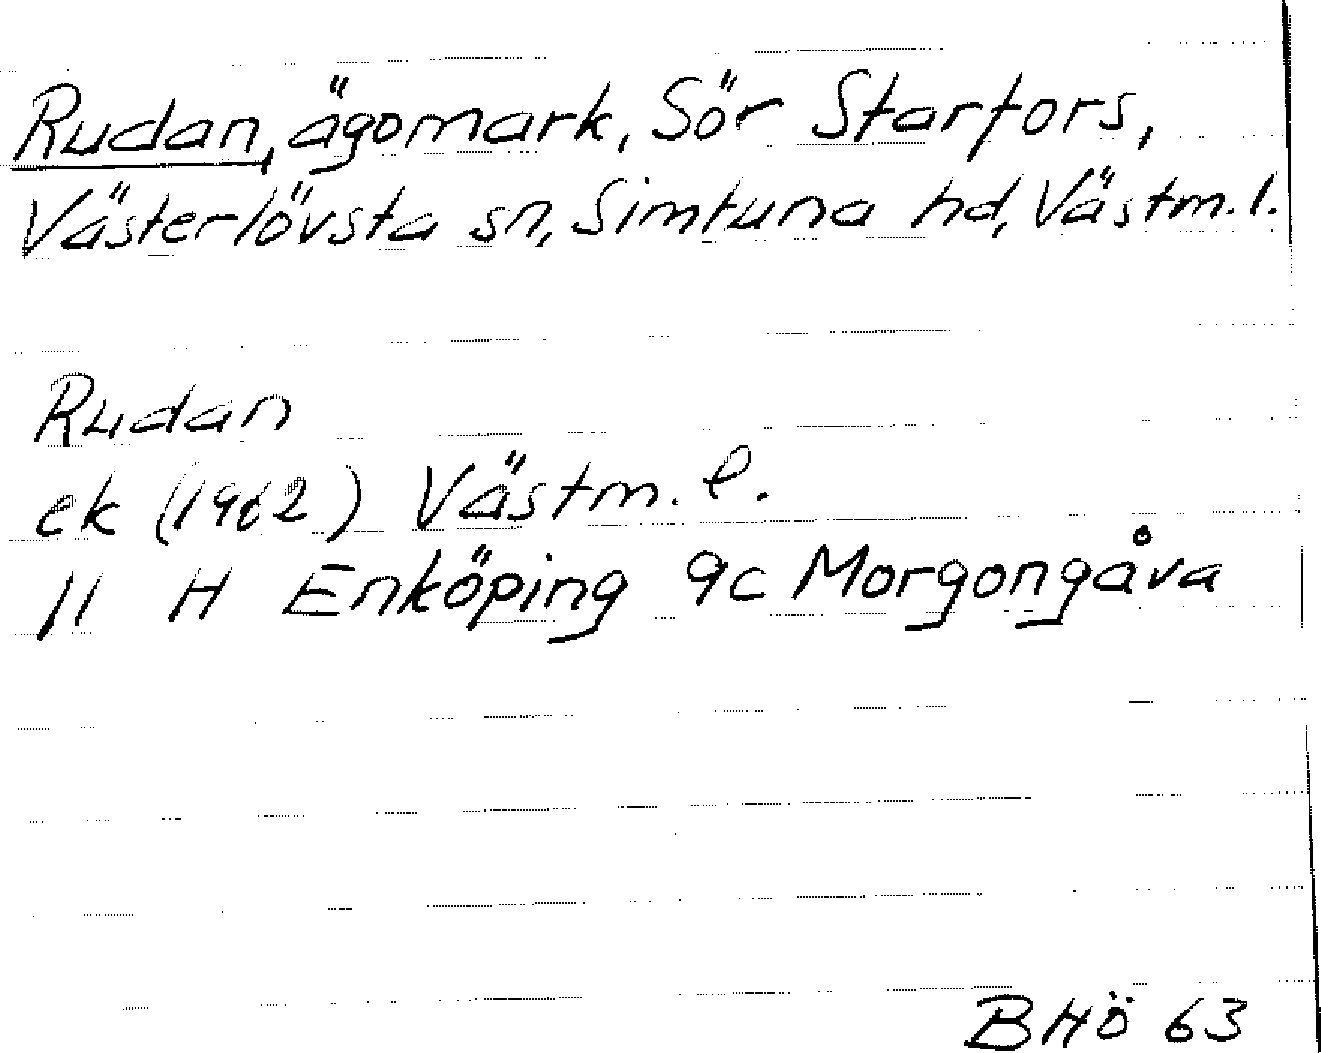 Rudan, ägomark, Sör Starfors,
Västerlövsta sn, Simtuna hd, Västm. l.
Rudan
ek (1962) Västm. l.
11 H Enköping 9c Morgongåva
BHÖ 63